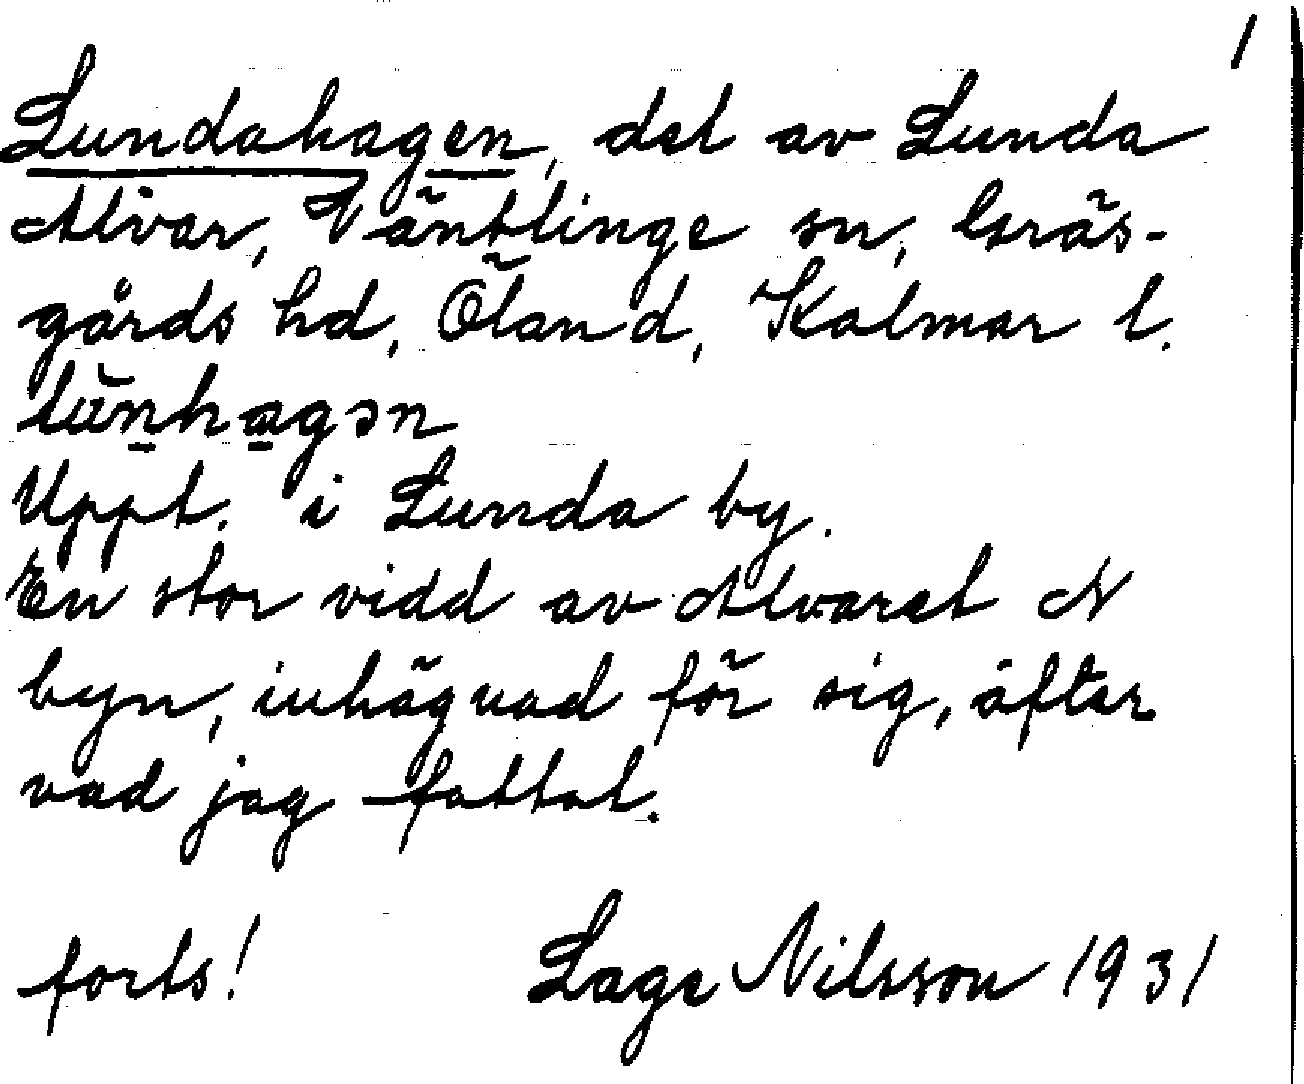 1
Lundahagen, del av Lunda
Alvar, Väntlinge sn, Gräs-
gårds hd, Öland, Kalmar l.
Uppt. i Lunda by.
En stor vidd av Alvaret N
byn, inhägnad för sig, äfter
vad jag fattat.
forts! Lage Nilsson 1931